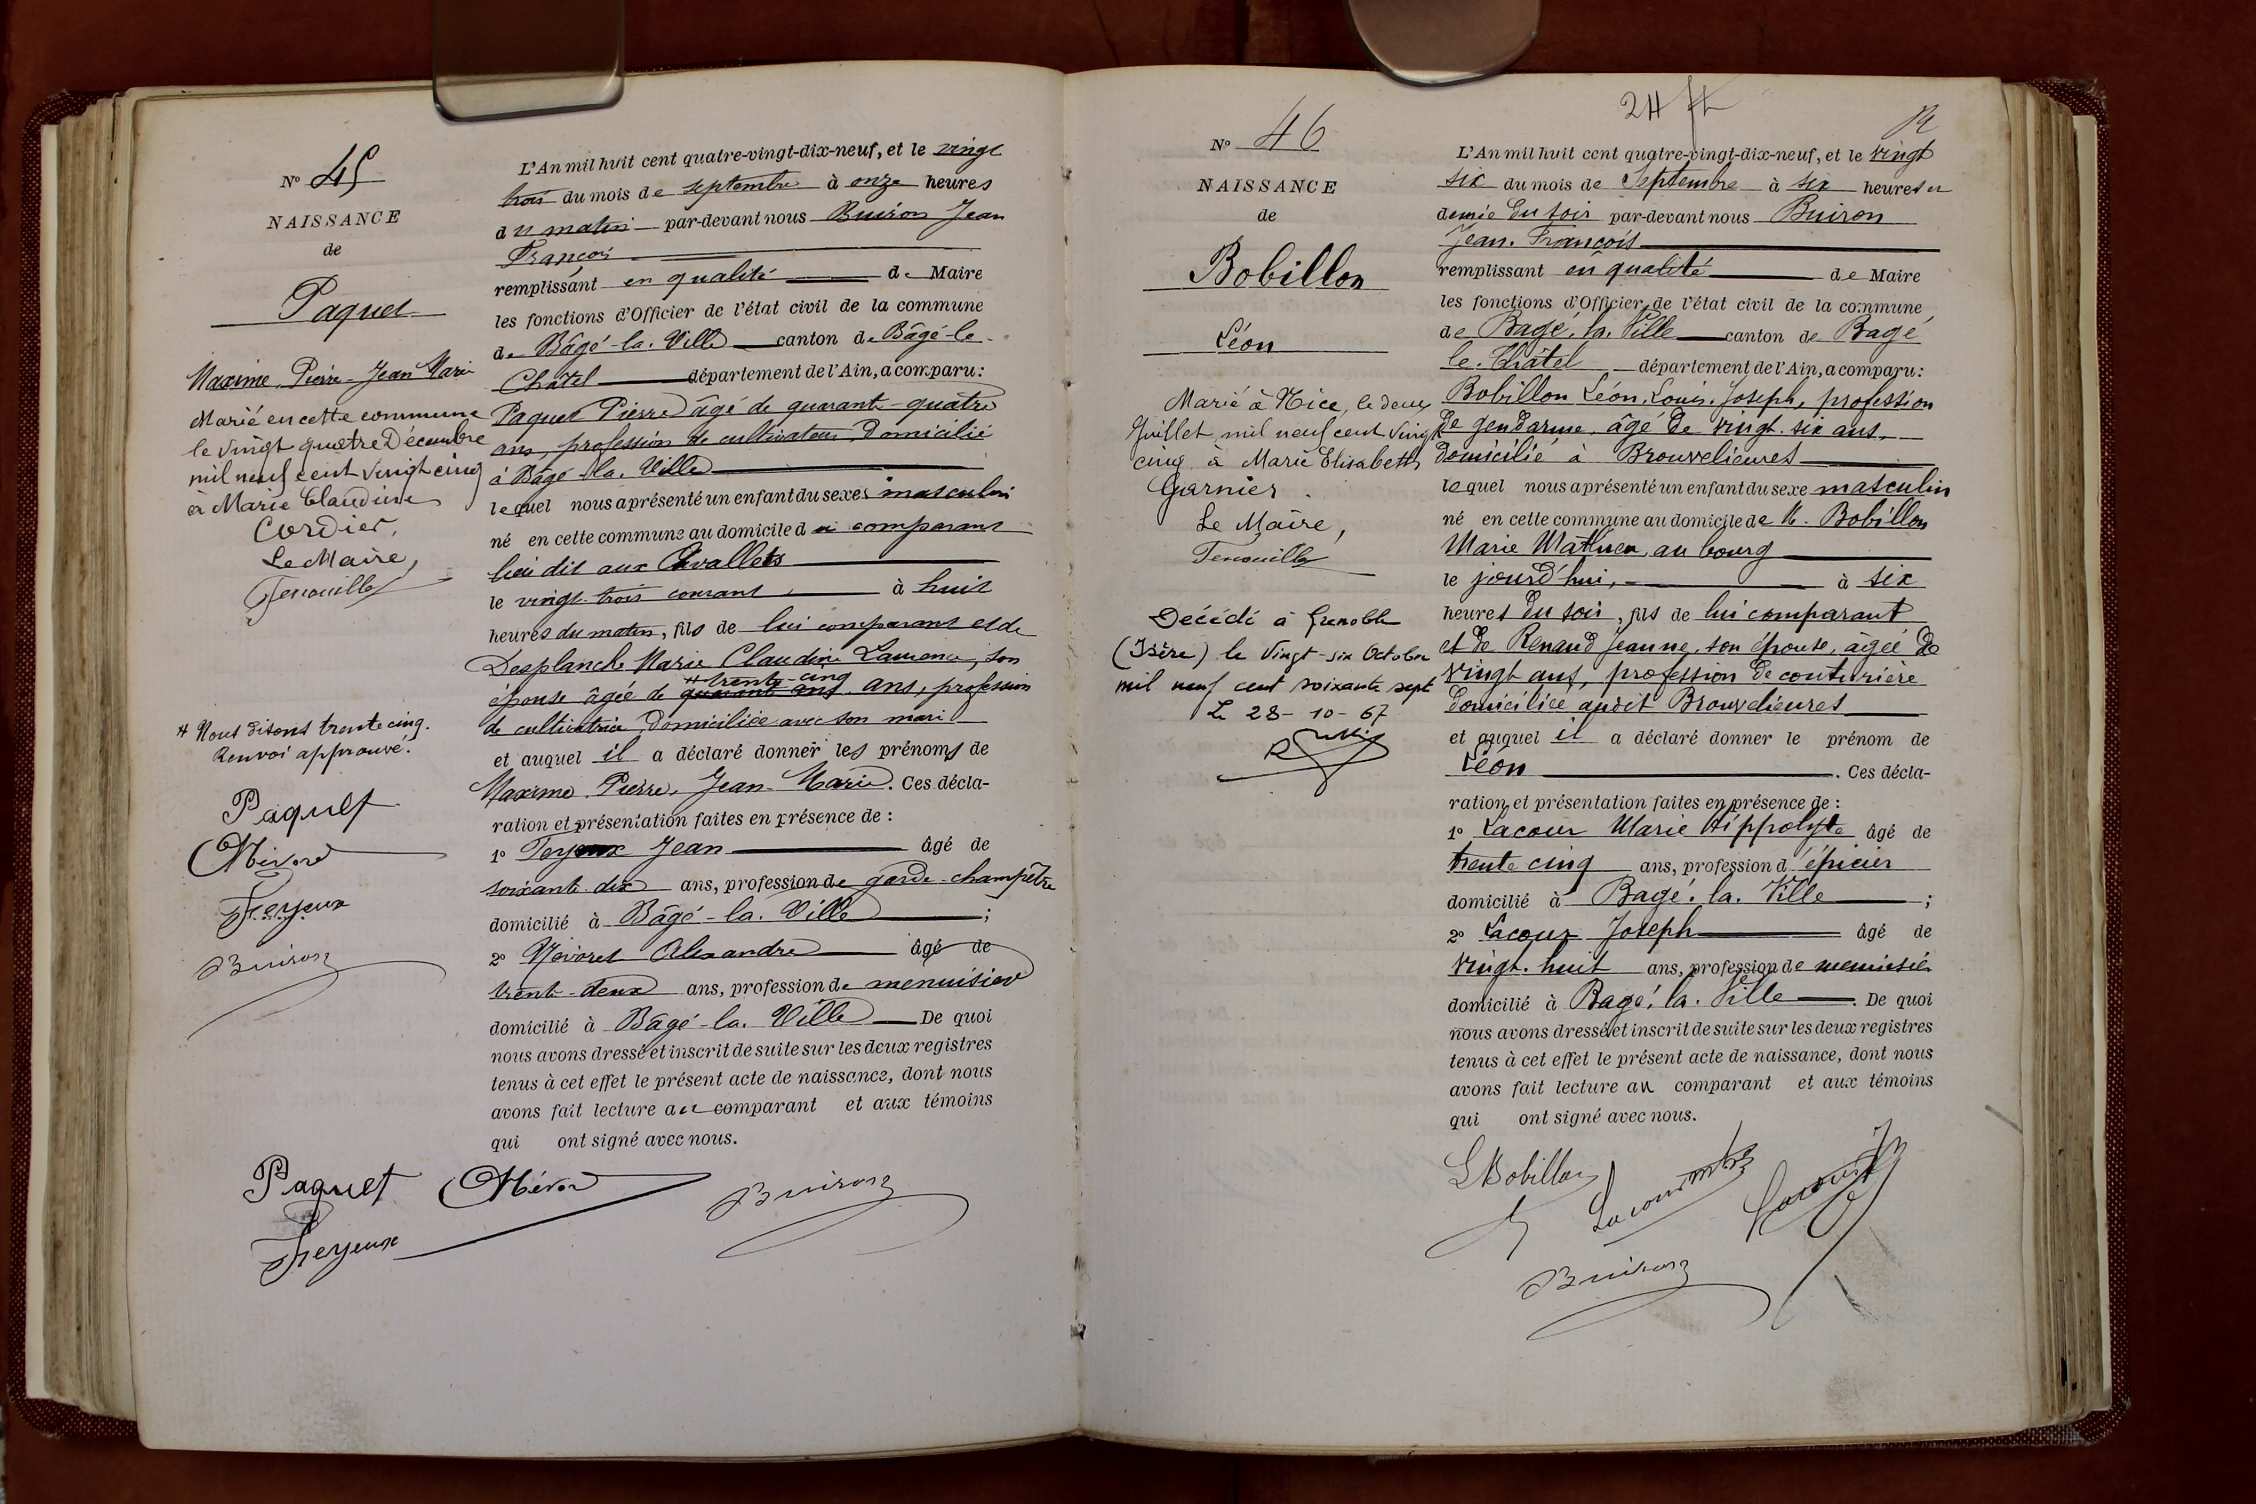 N° 45
NAISSANCE
de
Paquet
Maxime Pierre-Jean Marie
Marié en cette commune
le vingt quatre Décembre
mil neuf cent vingt cinq
à Marie Claudine
Cordier
Le Maire,
Fenouillet
# Nous disons trente cinq.
Renvoi approuvé.
Paquet
Buiron
L'An mil huit cent quatre-vingt-dix-neuf, et le vingt
trois du mois de septembre à onze heures
du matin par-devant nous Buiron Jean
François
remplissant en qualité de Maire
les fonctions d'Officier de l'état civil de la commune
de Bâgé-la-Ville canton de Bâgé-le-
Châtel département de l'Ain, a comparu:
Paquet Pierre âgé de quarante-quatre
ans, profession de cultivateur, domicilié
à Bâgé-la-Ville
lequel nous a présenté un enfant du sexe masculin
né en cette commune au domicile du comparant
lieu dit aux
le vingt-trois courant à huit
heures du matin, fils de lui comparant et de
Desplanche Marie Claudine Laurence, son
# trente-cinq
épouse âgée de quarante ans ans, profession
de cultivatrice, domiciliée avec son mari
et auquel il a déclaré donner les prénoms de
Maxime Pierre, Jean-Marie. Ces décla-
ration et présentation faites en présence de :
1° Teyeux Jean âgé de
soixante dix ans, profession de garde-champêtre
domicilié à Bâgé-la-Ville ;
2° Alexandre âgé de
trente-deux ans, profession de menuisier
domicilié à Bâgé-la-Ville De quoi
nous avons dressé et inscrit de suite sur les deux registres
tenus à cet effet le présent acte de naissance, dont nous
avons fait lecture au comparant et aux témoins
qui ont signé avec nous.
Paquet Buiron
24
N° 46
NAISSANCE
de
Bobillon
Léon
Marié à Nice, le deux
Juillet mil neuf cent vingt
cinq à Marie Elisabeth
Garnier.
Le Maire,
Fenouillet
Décédé à Grenoble
(Isère) le vingt-six Octobre
mil neuf cent soixante sept
Le 28-10-67
L'An mil huit cent quatre-vingt-dix-neuf, et le vingt
six du mois de Septembre à six heures et
demie du soir par-devant nous Buiron
Jean. François
remplissant en qualité de Maire
les fonctions d'Officier de l'état civil de la commune
de Bagé. la. Ville canton de Bagé
le. Châtel département de l'Ain, a comparu:
Bobillon Léon. Louis. Joseph, profession
de gendarme, âgé de vingt. six ans,
domicilié à Brouvelieures
lequel nous a présenté un enfant du sexe masculin
né en cette commune au domicile de M. Bobillon
Marie Mathieu, au bourg
le jourd'hui, à six
heures du soir, fils de lui comparant
et de Renaud Jeanne, son épouse, âgée de
vingt ans, profession de couturière
domiciliée audit Brouvelieures
et auquel il a déclaré donner le prénom de
Léon. Ces décla-
ration et présentation faites en présence de :
1° Lacour Marie Hippolyte âgé de
trente cinq ans, profession d'épicier
domicilié à Bagé. la. Ville ;
2° Lacour Joseph âgé de
vingt. huit ans, profession de menuisier
domicilié à Bagé. la. Ville. De quoi
nous avons dressé et inscrit de suite sur les deux registres
tenus à cet effet le présent acte de naissance, dont nous
avons fait lecture au comparant et aux témoins
qui ont signé avec nous.
L Bobillon Lacour
Buiron